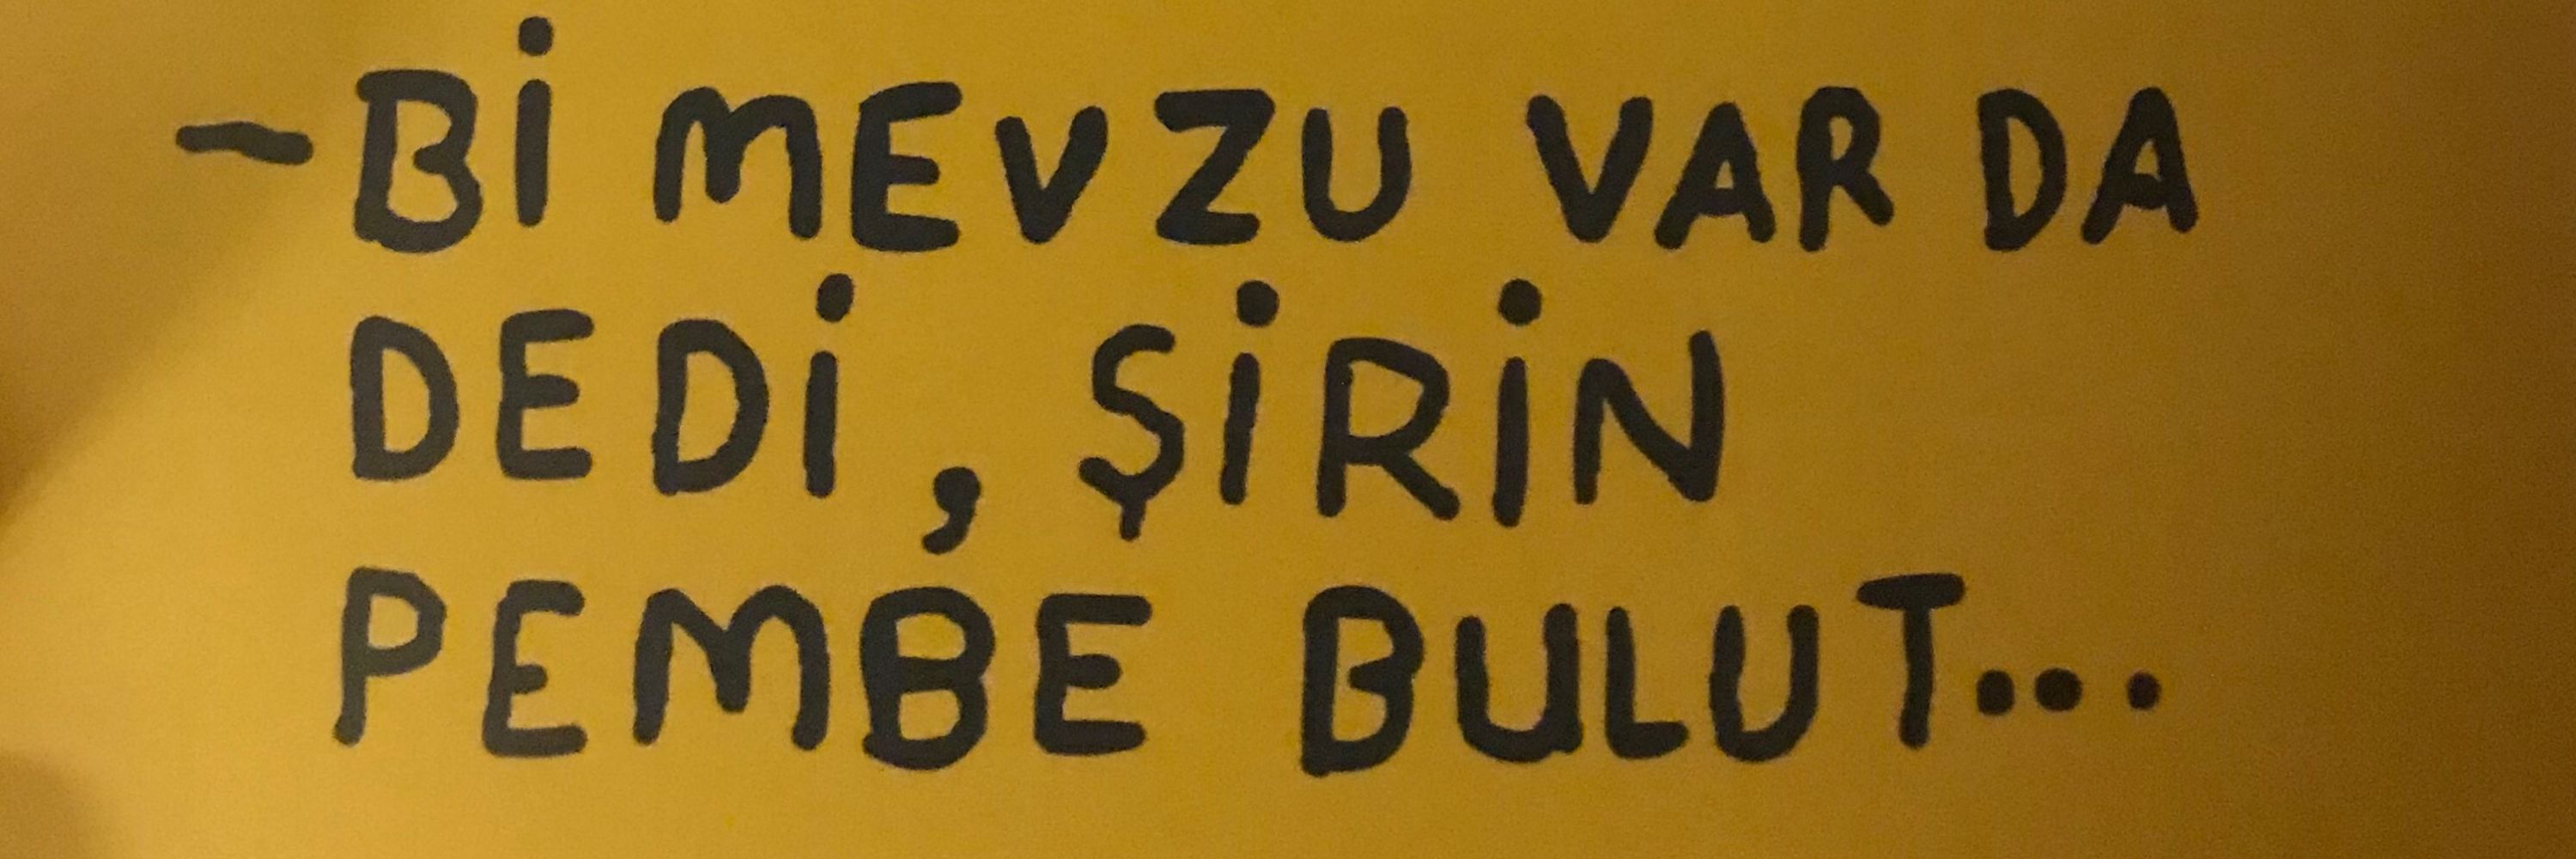 -Bİ MEVZU VAR DA
DEDİ, ŞİRİN
PEMBE BULUT...